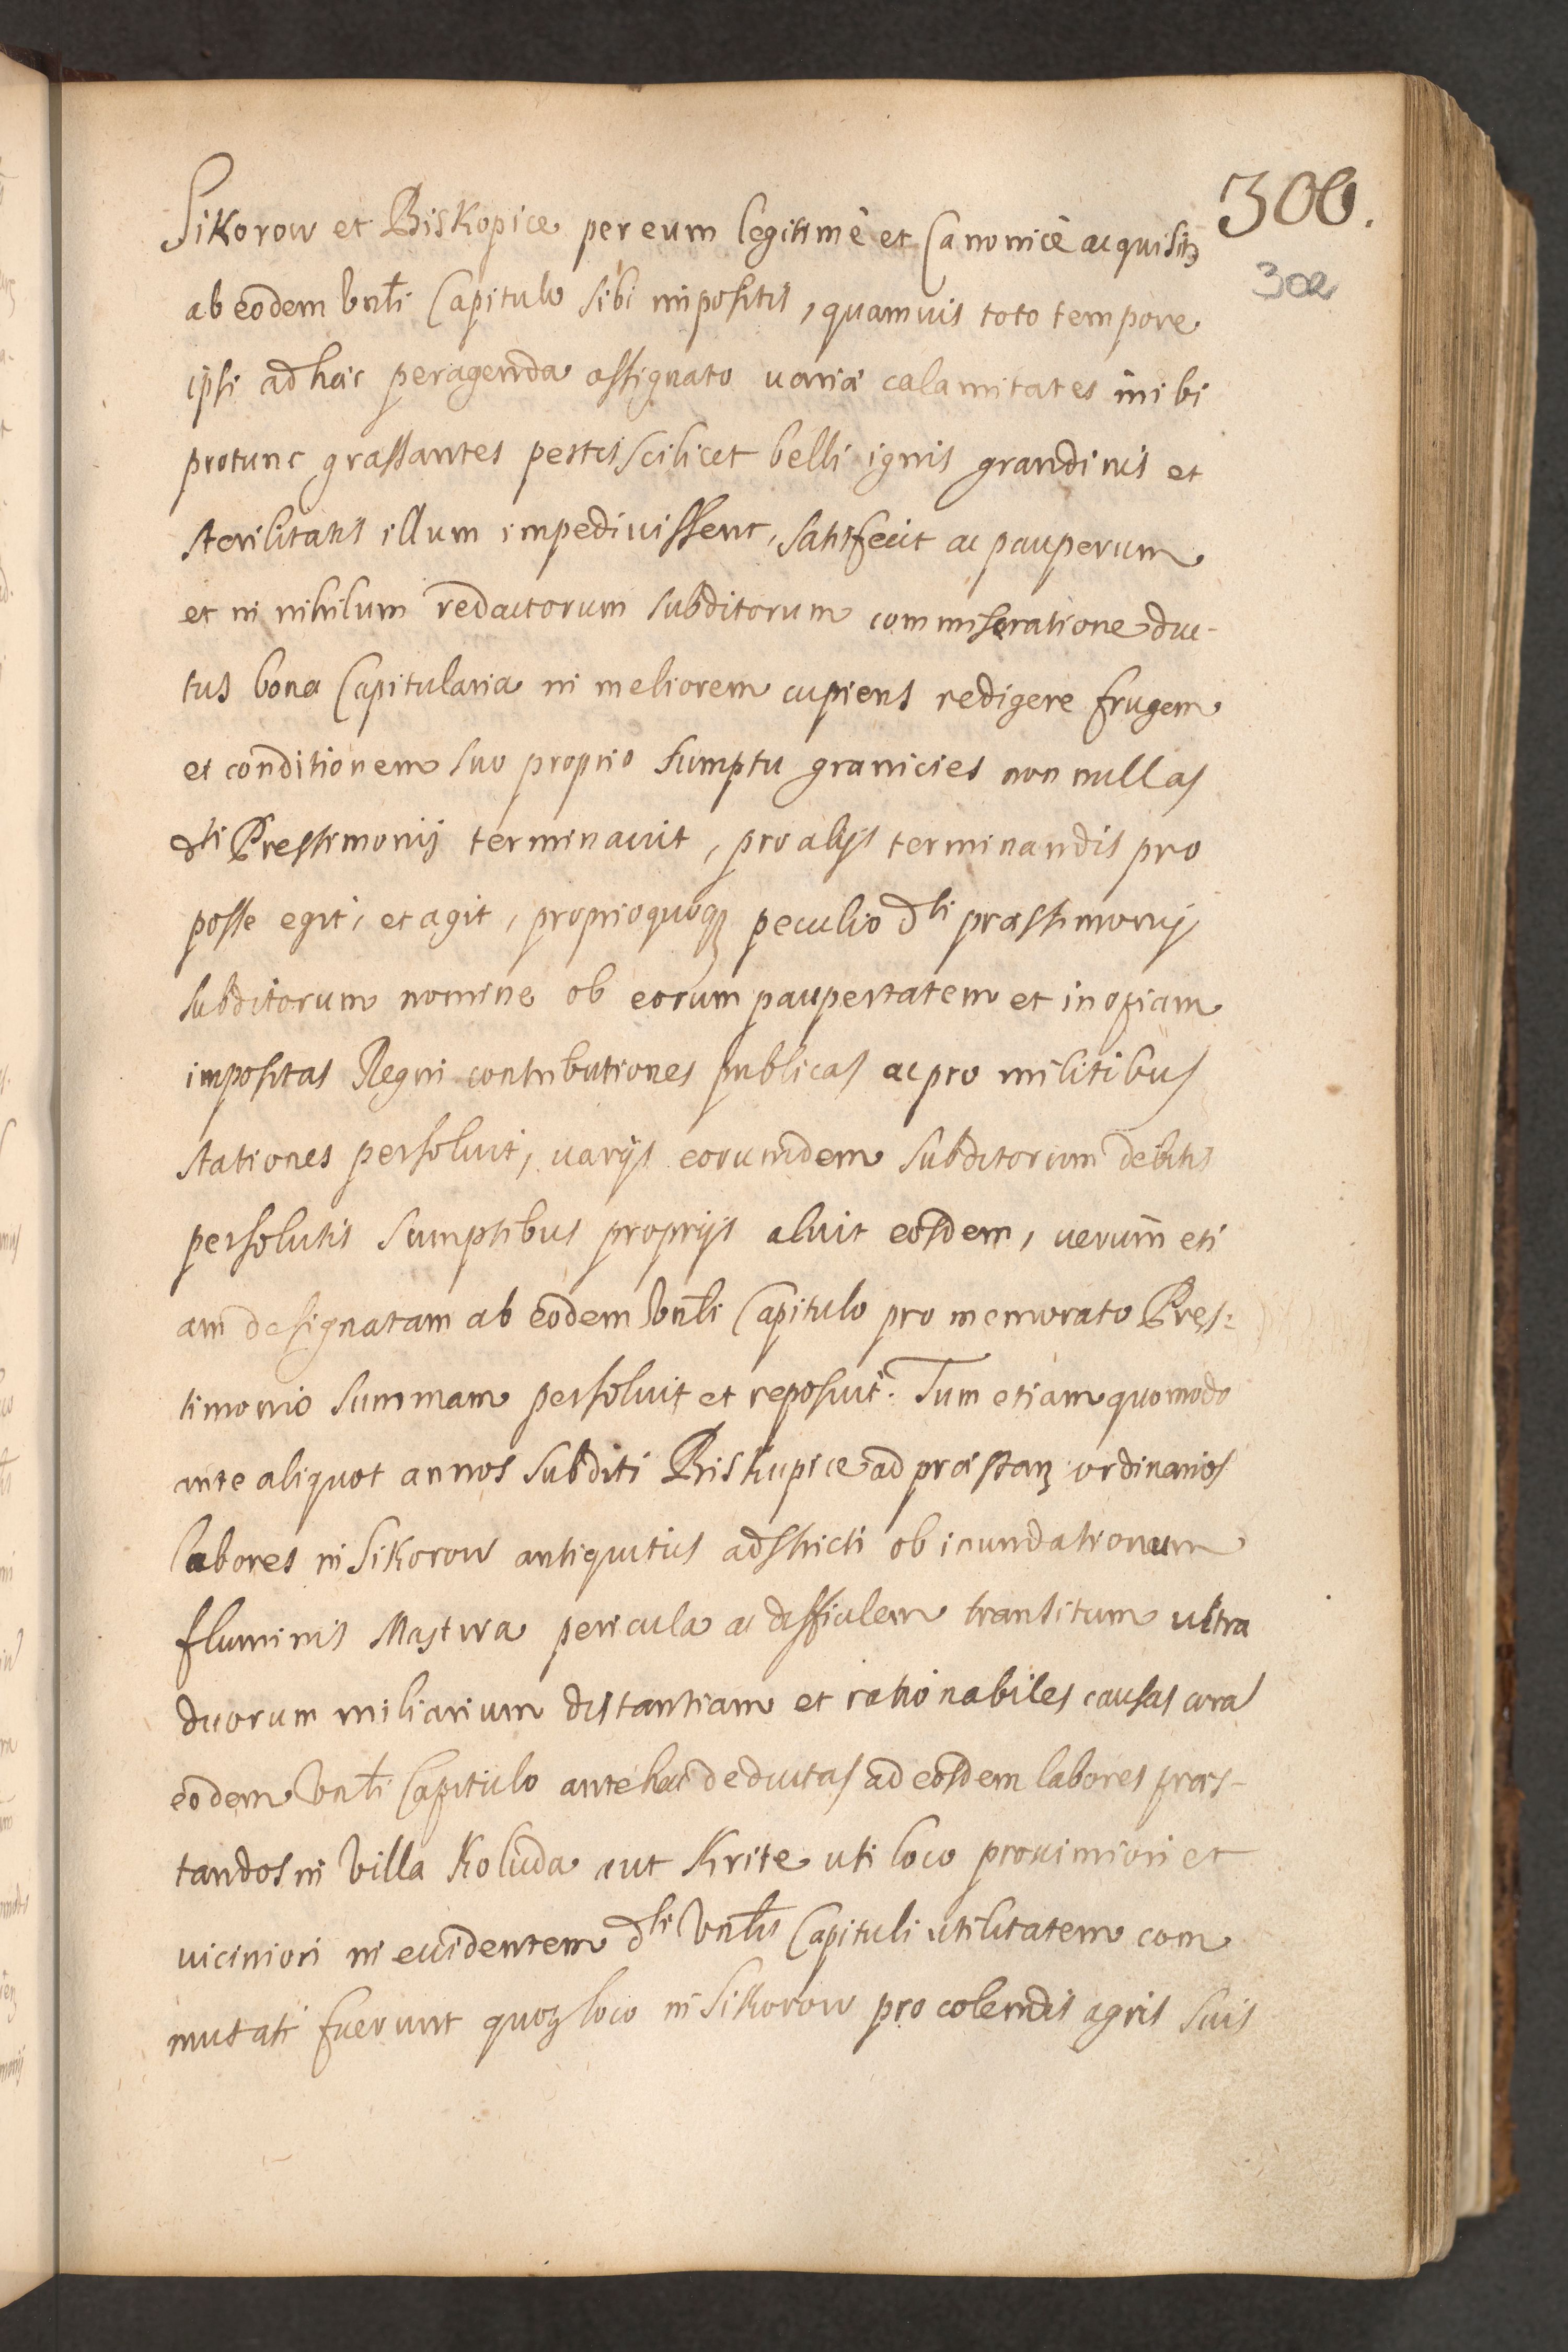 300.
302
Sikorow et Biskopice per eum legitimè et Canonicè acquisitꝫ
ab eodem Vnli Capitulo sibi impositis, quamuis toto tempore
ipsi ad hæc peragenda assignato uariæ calamitates inibi
protunc grassantes pestis scilicet belli ignis grandinis et
sterilitatis illum impedivissent, satisfecit ac pauperum
et in nihilum redactorum subditorum commiseratione duc-
tus bona Capitularia in meliorem cupiens redigere frugem
et conditionem suo proprio sumptu granicies non nullas
dti Prestimonij terminavit, pro alijs terminandis pro
posse egit, et agit, proprioquoqꝫ peculio dti præstimonij
subditorum nomine ob eorum paupertatem et inopiam
impositas Regni contributiones publicas ac pro militibus
stationes persoluit, uarijs eorumdem subditorum debitis
persolutis sumptibus proprijs aluit eosdem, uerum eti
am designatam ab eodem Vnli Capitulo pro memorato Pres:
timonio summam persoluit et reposuit. Tum etiam quomodo
ante aliquot annos subditi Biskupice ad præstanꝫ ordinarios
labores in Sikorow antiquitus adstricti ob inundationum
fluminis Mastwa pericula ac difficilem transitum ultra
duorum miliarium distantiam et rationabiles causas cora
eodem Vnli Capitulo antehac deductas ad eosdem labores præs-
tandos in Villa Koluda aut Krite uti loco proximiori et
uiciniori in euidentem dti Vnlis Capituli utilitatem com
mutati fuerunt quoꝫ loco in Sikorow pro colendis agris suis